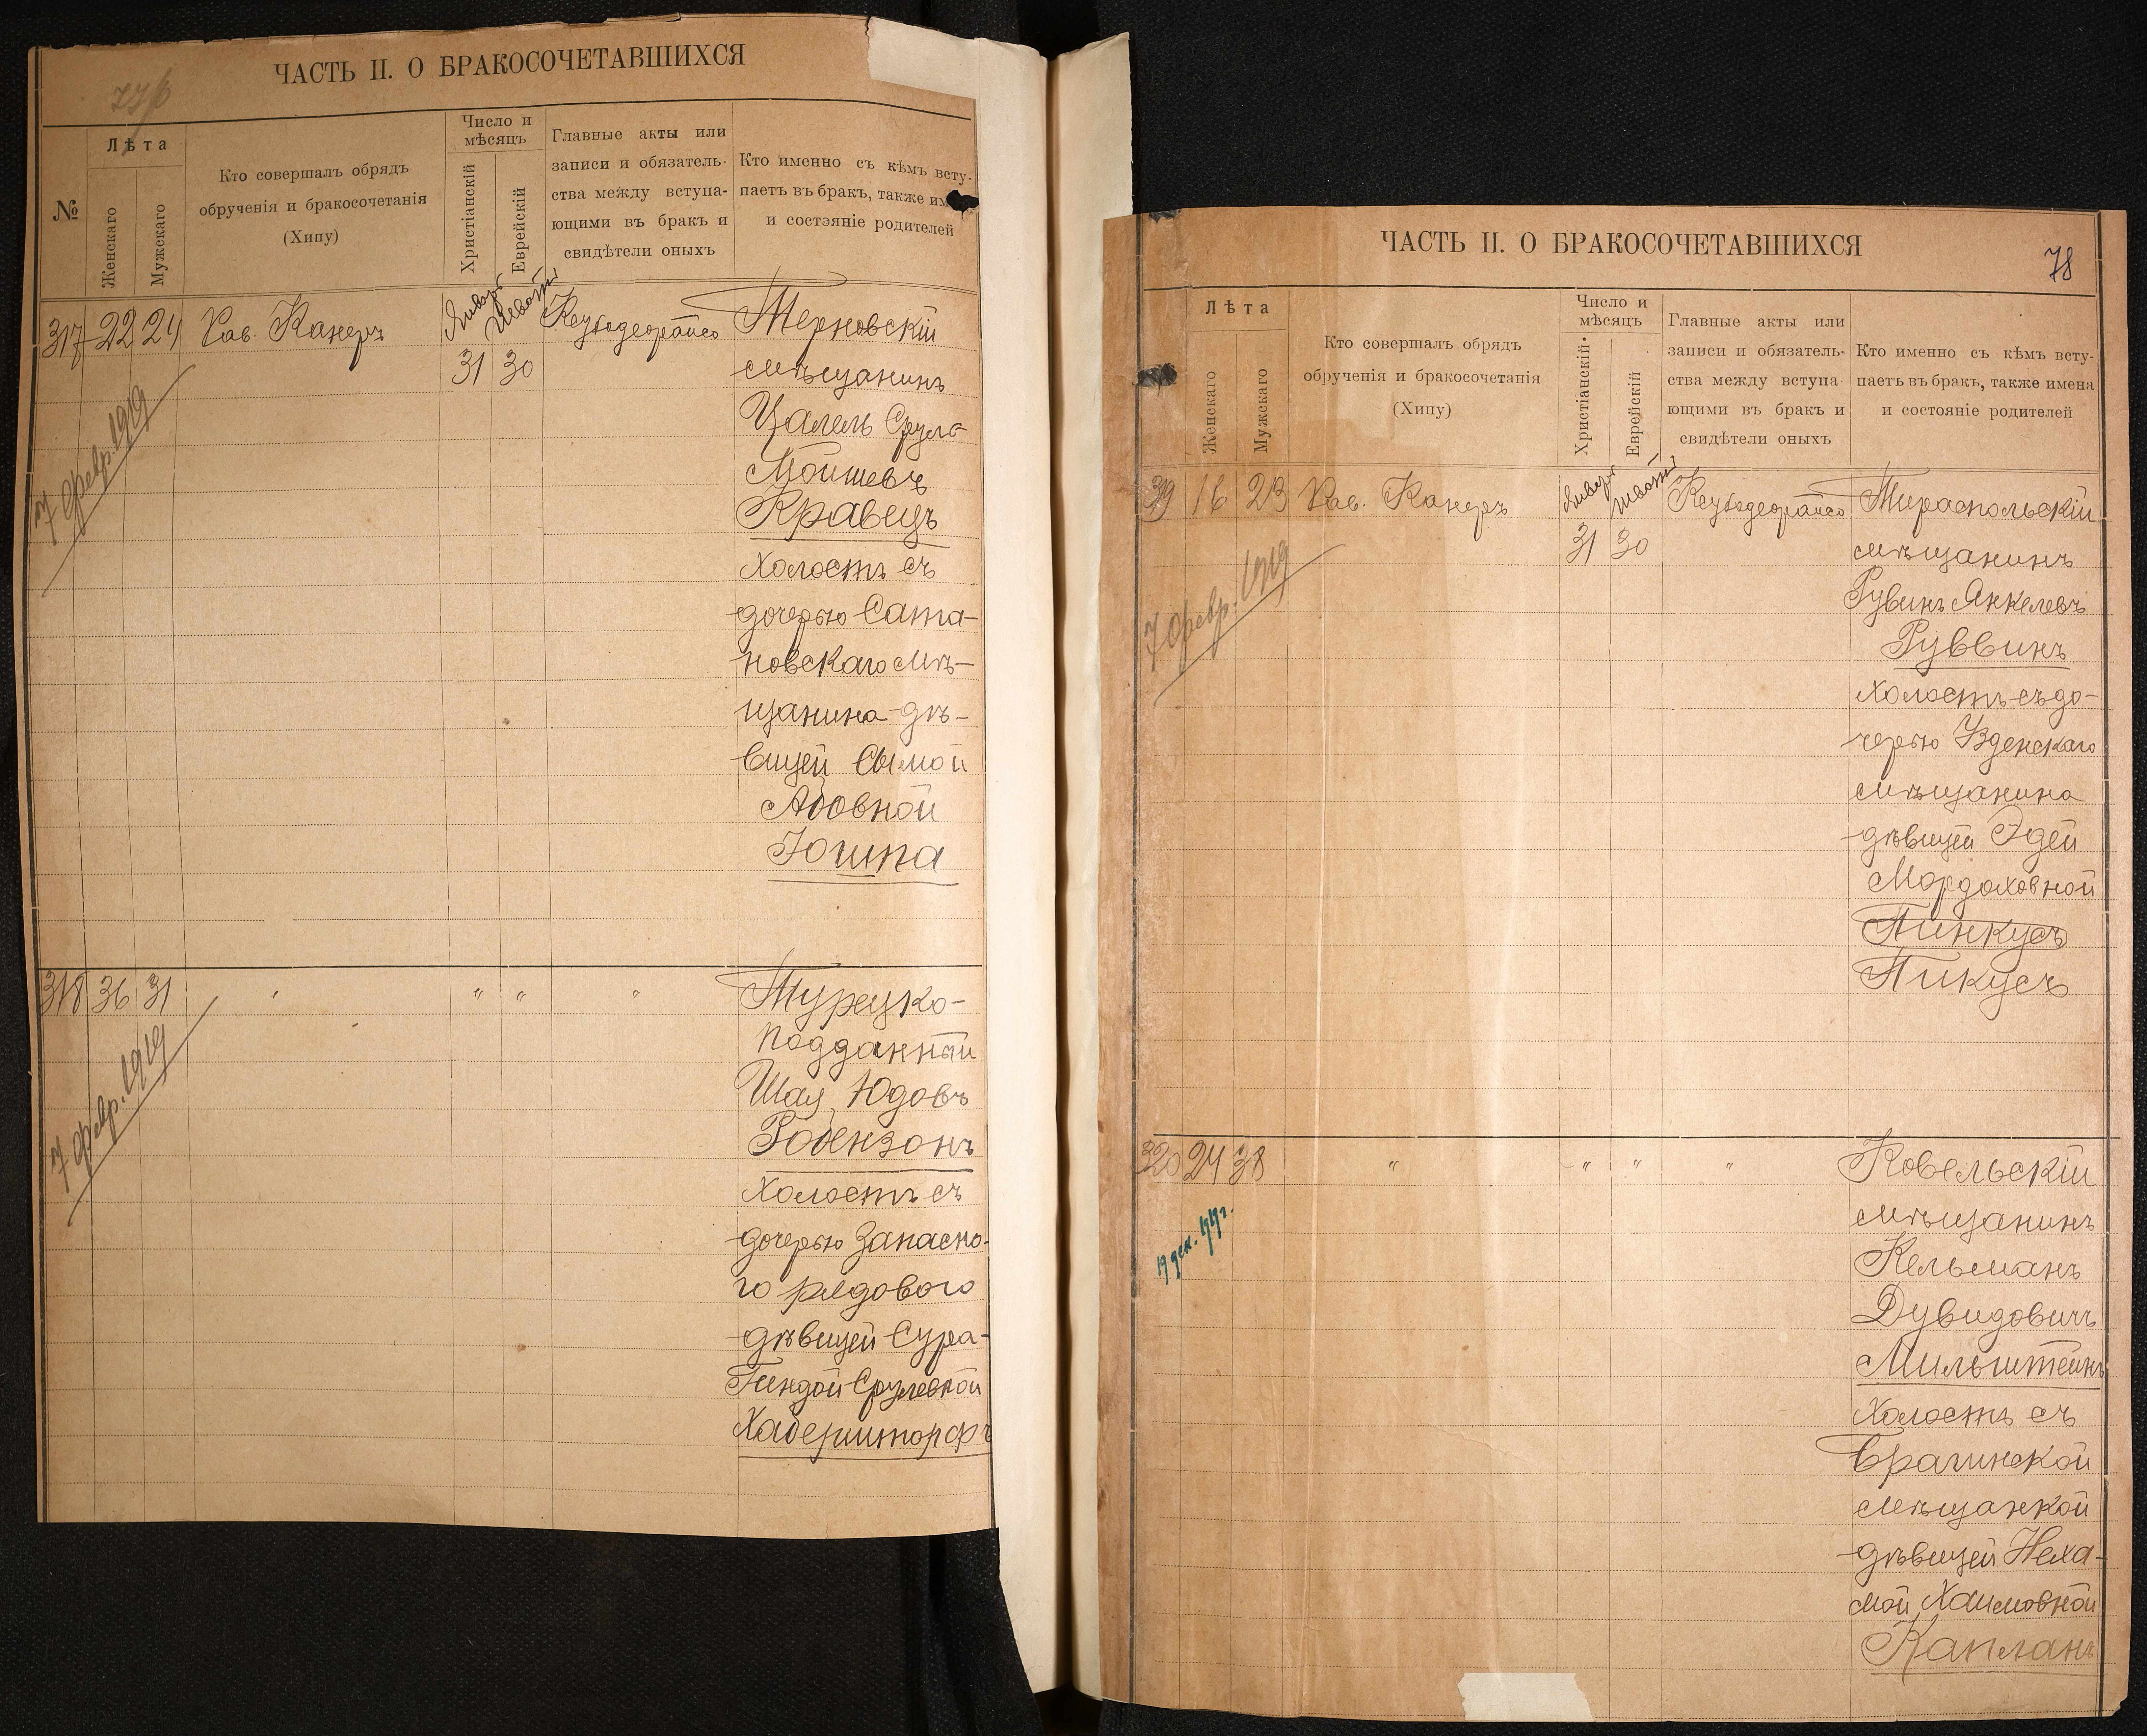 ЧАСТЬ II. О БРАКОСОЧЕТАВШИХСЯ
№
Лѣта
Женскаго
Мужскаго
Кто совершалъ обрядъ
обрученія и бракосочетанія
(Хипу)
Число и
мѣсяцъ
Христіанскій
Еврейскій
Главные акты или
записи и обязатель-
ства между вступа-
ющими въ бракъ и
свидѣтели оныхъ
Кто именно съ кѣмъ всту-
паетъ въ бракъ, также им
и состэяніе родителей
317 22 24 Рав. Канеръ
Январь Шватъ
31 30
Ксубодеорайсо
Терновскій
мѣщанинъ
Цалель Срул-
Мойшевъ
Кравецъ
холостъ съ
дочерью Сата-
новскаго мѣ-
щанина дѣ-
вицей Сымой
Абовной
Юшпа
7 февр. 1919
318 36 31 " " " "
Турецко-
подданный
Шая Юдовъ
Робензонъ
холостъ съ
дочерью запасно-
го рядового
дѣвицей Сура-
Гиндой Срулевной
Хаберишторфъ
7 февр. 1919
ЧАСТЬ II. О БРАКОСОЧЕТАВШИХСЯ
78
Лѣта
Женскаго
Мужскаго
Кто совершалъ обрядъ
обрученія и бракосочетанія
(Хипу)
Число и
мѣсяцъ
Христіанскій
Еврейскій
Главные акты или
записи и обязатель-
ства между вступа
ющими въ бракъ и
свидѣтели оныхъ
Кто именно съ кѣмъ всту-
паетъ въ бракъ, также имена
и состояніе родителей
319 16 23 Рав. Канеръ
Январь Шватъ
31 30
Ксубодеорайсо
Тираспольскій
мѣщанинъ
Рувинъ Янкелевъ
Руввинъ
холостъ съ до-
черью Узденскаго
мѣщанина
дѣвицей Эдей
Мордоховной
Пинкусъ
Пикусъ
7 февр. 1919
320 24 38 " " " "
Ковельскій
мѣщанинъ
Кельманъ
Дувидовичъ
Мильштейнъ
холостъ съ
Брагинской
мѣщанкой
дѣвицей Неха-
мой Хаимовной
Капланъ
19 дек. 1919г.